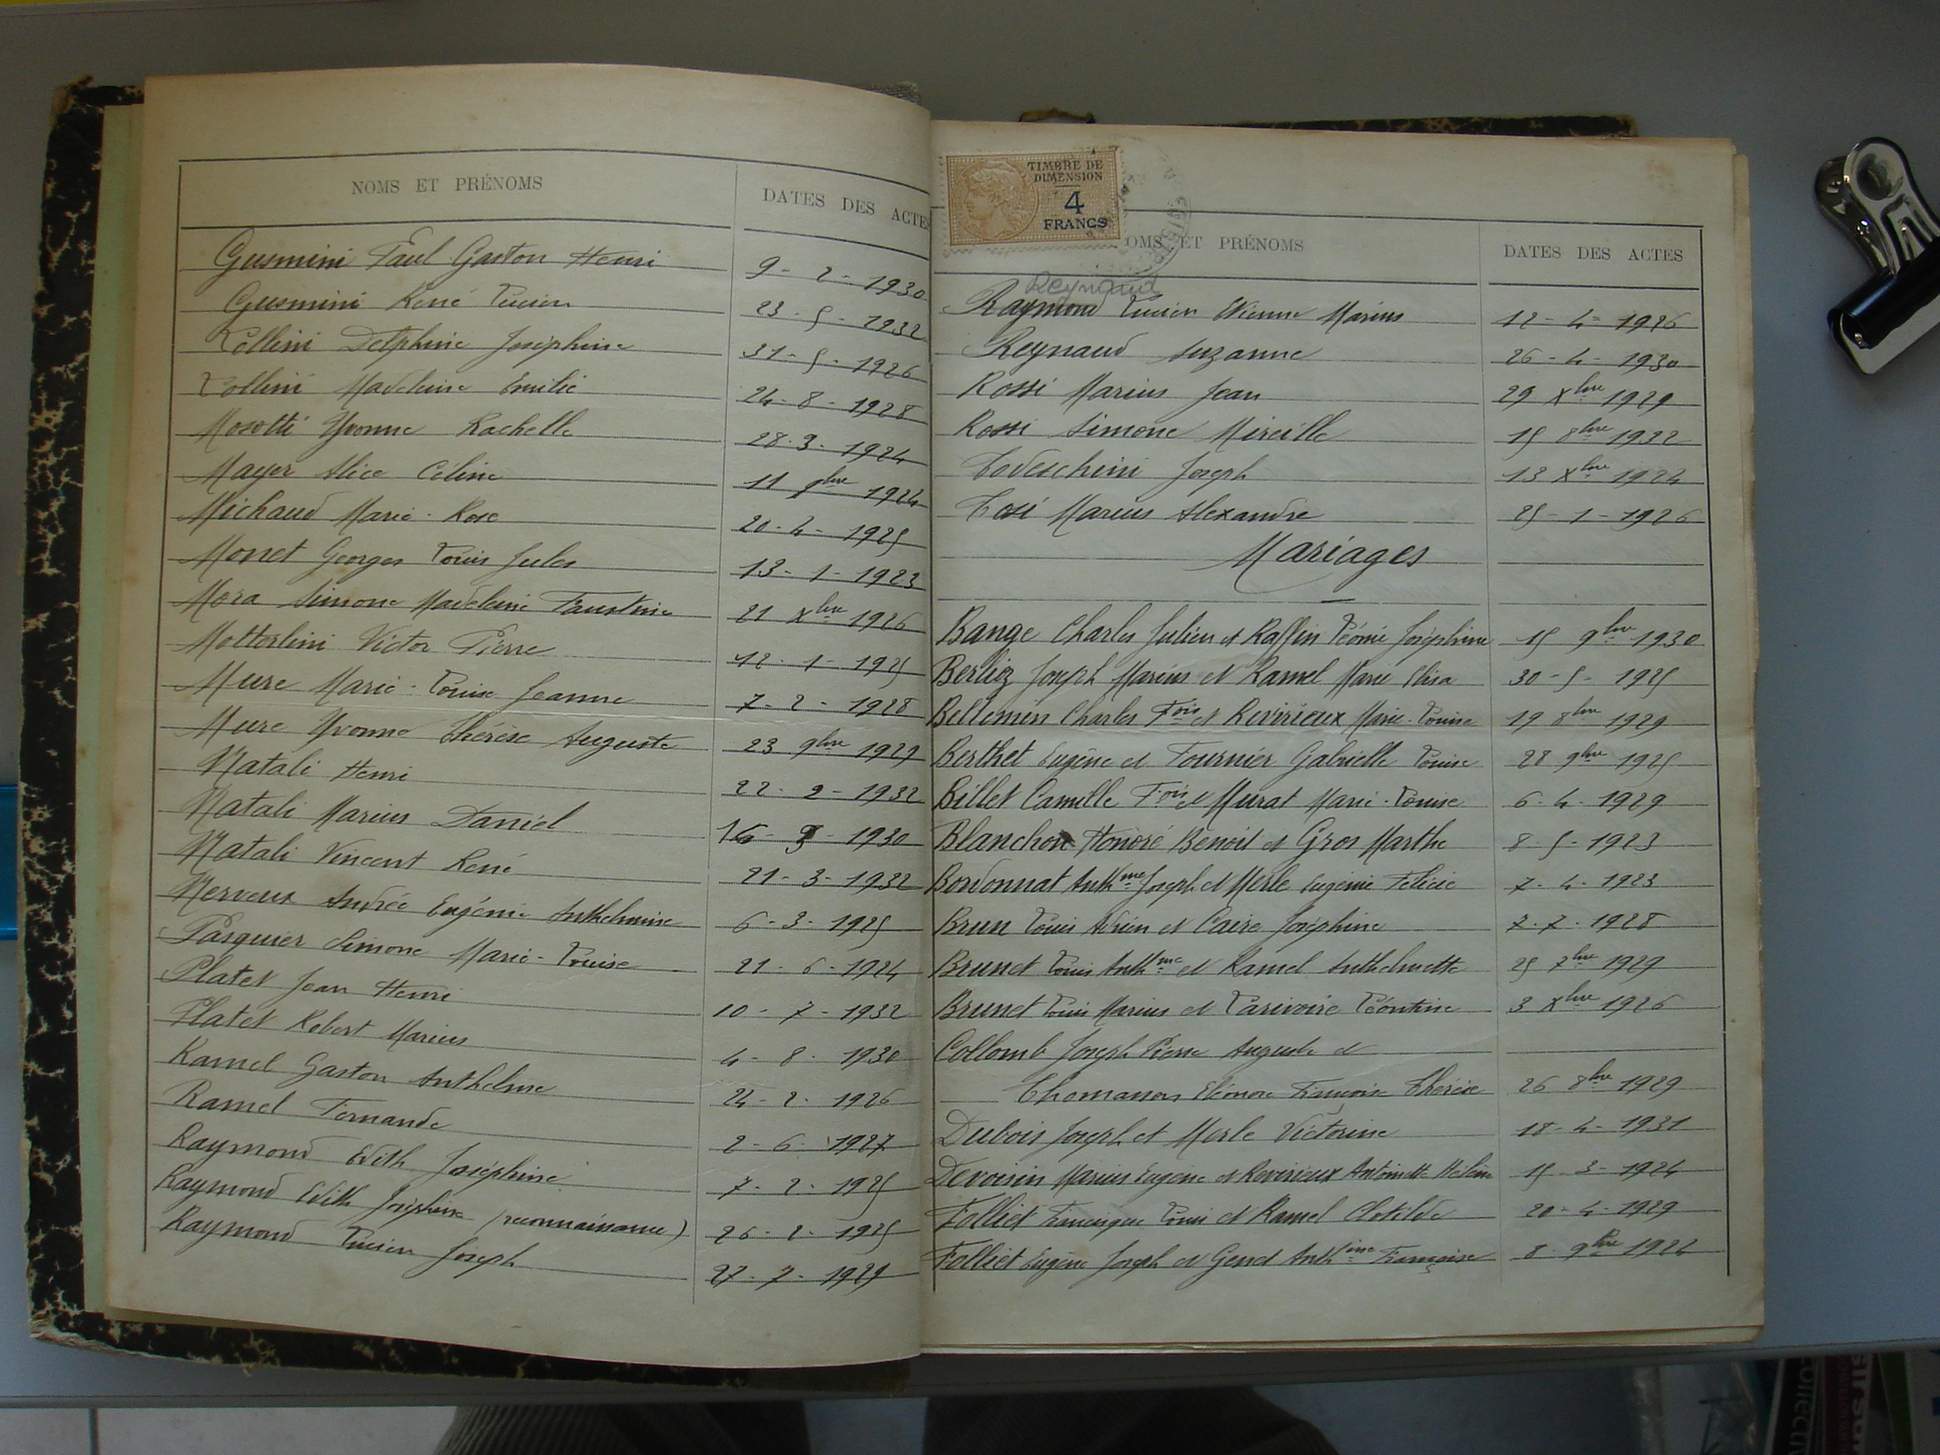 NOMS ET PRÉNOMS
DATES DES ACTES
Gusmini Paul Gaston Henri 9 - 2 - 1930
Gusmini René Lucien 23 - 5 - 1932
Lollini Delphine Joséphine 31 - 5 - 1926
Lollini Madeleine Emilie 24 - 8 - 1928
Mosotti Yvonne Rachelle 28 - 3 - 1924
Mayer Alice Céline 11 9bre 1924
Michaud Marie-Rose 20 - 4 - 1925
Monet Georges Louis Jules 13 - 1 - 1923
Mora Simone Madeleine Faustine 21 Xbre 1926
Mottorlini Victor Pierre 12 - 1 - 1925
Mure Marie-Louise Jeanne 7 - 2 - 1928
Mure Yvonne Thérèse Auguste 23 9bre 1929
Natali Henri 22 - 2 - 1932
Natali Marius Daniel 16 - 1930
Natali Vincent René 21 - 3 - 1932
Nerveux Andrée Eugénie Anthelmine 6 - 3 - 1925
Pasquier Simone Marie-Louise 21 - 6 - 1924
Platet Jean Henri 10 - 7 - 1932
Platet Robert Marius 4 - 8 - 1930
Ramel Gaston Anthelme 24 - 2 - 1926
Ramel Fernande 2 - 6 - 1927
Raymond Edith Joséphine 7 - 2 - 1925
Raymond Edith Joséphine (reconnaissance) 26 - 2 - 1925
Raymond Lucien Joseph 27 - 7 - 1929
TIMBRE DE
DIMENSION
4
FRANCS
NOMS ET PRÉNOMS
DATES DES ACTES
Reynaud
Raymond Lucien Etienne Marius 12 - 4 - 1926
Reynaud Suzanne 26 - 4 - 1930
Rossi Marius Jean 29 Xbre 1929
Rossi Simone Mireille 15 8bre 1932
Todeschini Joseph 13 Xbre 1924
Tosi Marius Alexandre 25 - 1 - 1926
Mariages
Bange Charles Julien et Raffin Léonie Joséphine 15 9bre 1930
Berlioz Joseph Marius et Ramel Marie Elisa 30 - 5 - 1925
Bellemin Charles Fois et Revirieux Marie-Louise 19 8bre 1929
Berthet Eugène et Fournier Gabrielle Louise 28 9bre 1925
Billet Camille Fois et Murat Marie-Louise 6 - 4 - 1929
Blanchon Honoré Benoit et Gros Marthe 8 - 5 - 1923
Bordonnat Anthme Joseph et Merle Eugénie Félicie 7 - 4 - 1923
Brun Louis Adrien et Caire Joséphine 7 - 7 - 1928
Brunet Louis Anthme et Ramel Anthelmette 25 7bre 1929
Brunet Louis Marius et Larivoire Léontine 3 Xbre 1926
Collomb Joseph Pierre Auguste et
Thomasson Eléonore Françoise Thérèse 26 8bre 1929
Dubois Joseph et Merle Victorine 18 - 4 - 1931
Devoisin Marius Eugène et Revirieux Antoinette Hélène 15 - 3 - 1924
Folliet Francisque Louis et Ramel Clotilde 20 - 4 - 1929
Folliet Eugène Joseph et Genet Anthime Françoise 8 9bre 1924